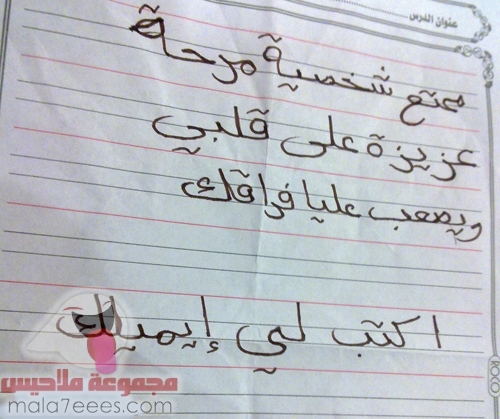 عنوان الدرس
ممتع شخصية مرحة
عزيزة على قلبي
ويصعب عليا فراقك
اكتب لي إيميلك
مجموعة ملاحيس
mala7eees.com